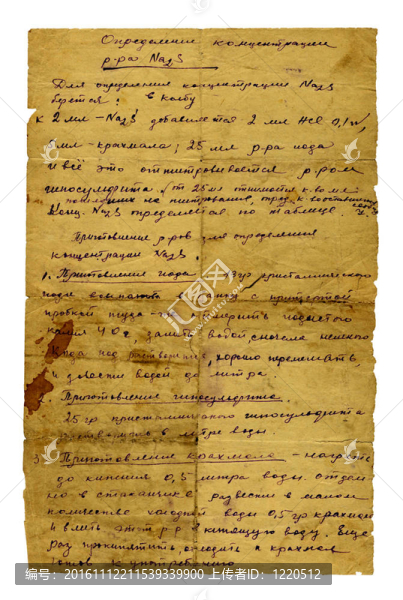 Определение концентрации
р-ра Na2S
Для определения концентрации Na2S
берется: в колбу
к 2 мл - Na2S добавляется 2 мл HCl 0,1 н,
мл - крахмала; 25 мл р-ра иода
и всё это оттитровывается р-ром
гипосульфита, от 25 мл отнимается к-во мл
пошедших на титрование,
Конц. Na2S определяется по таблице.
Приготовление р-ров для определения
концентрации Na2S.
1. Приготовление иода 13 гр кристаллического
иода с притертой
пробкой
калия 40 г, залить водой, сначала немного
хорошо перемешать,
и довести водой до литра
Приготовление гипосульфита.
25 гр кристаллического гипосульфита
растворить в литре воды
3. Приготовление крахмала - нагреть
до кипения 0,5 литра воды. отдель
но в стаканчике развести в малом
количестве холодной воды 0,5 гр крахмала
и влить этот р-р в кипящую воду. Еще
раз прокипятить, охладить и крахмал
готов к употреблению
编号:20161112211539339900 上传者ID:1220512